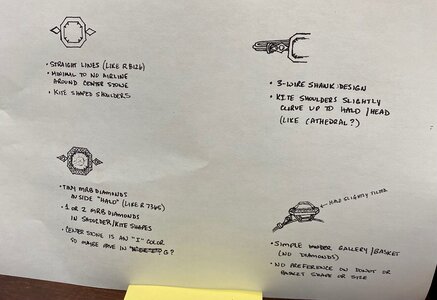 • STRAIGHT LINES (LIKE R8126)
• MINIMAL TO NO AIRLINE
AROUND CENTER STONE
• KITE SHAPED SHOULDERS
• 3-WIRE SHANK DESIGN
• KITE SHOULDERS SLIGHTLY
CURVE UP TO HALO/HEAD
(LIKE CATHEDRAL?)
• TINY MRB DIAMONDS
INSIDE "HALO" (LIKE R7365)
• 1 OR 2 MRB DIAMONDS
IN SHOULDER/KITE SHAPES
• CENTER STONE IS AN "I" COLOR
SO MAYBE MELE IN G?
HALO SLIGHTLY TILTED
• SIMPLE UNDER GALLERY/BASKET
(NO DIAMONDS)
• NO PREFERENCE ON DONUT OR
BASKET SHAPE OR SIZE